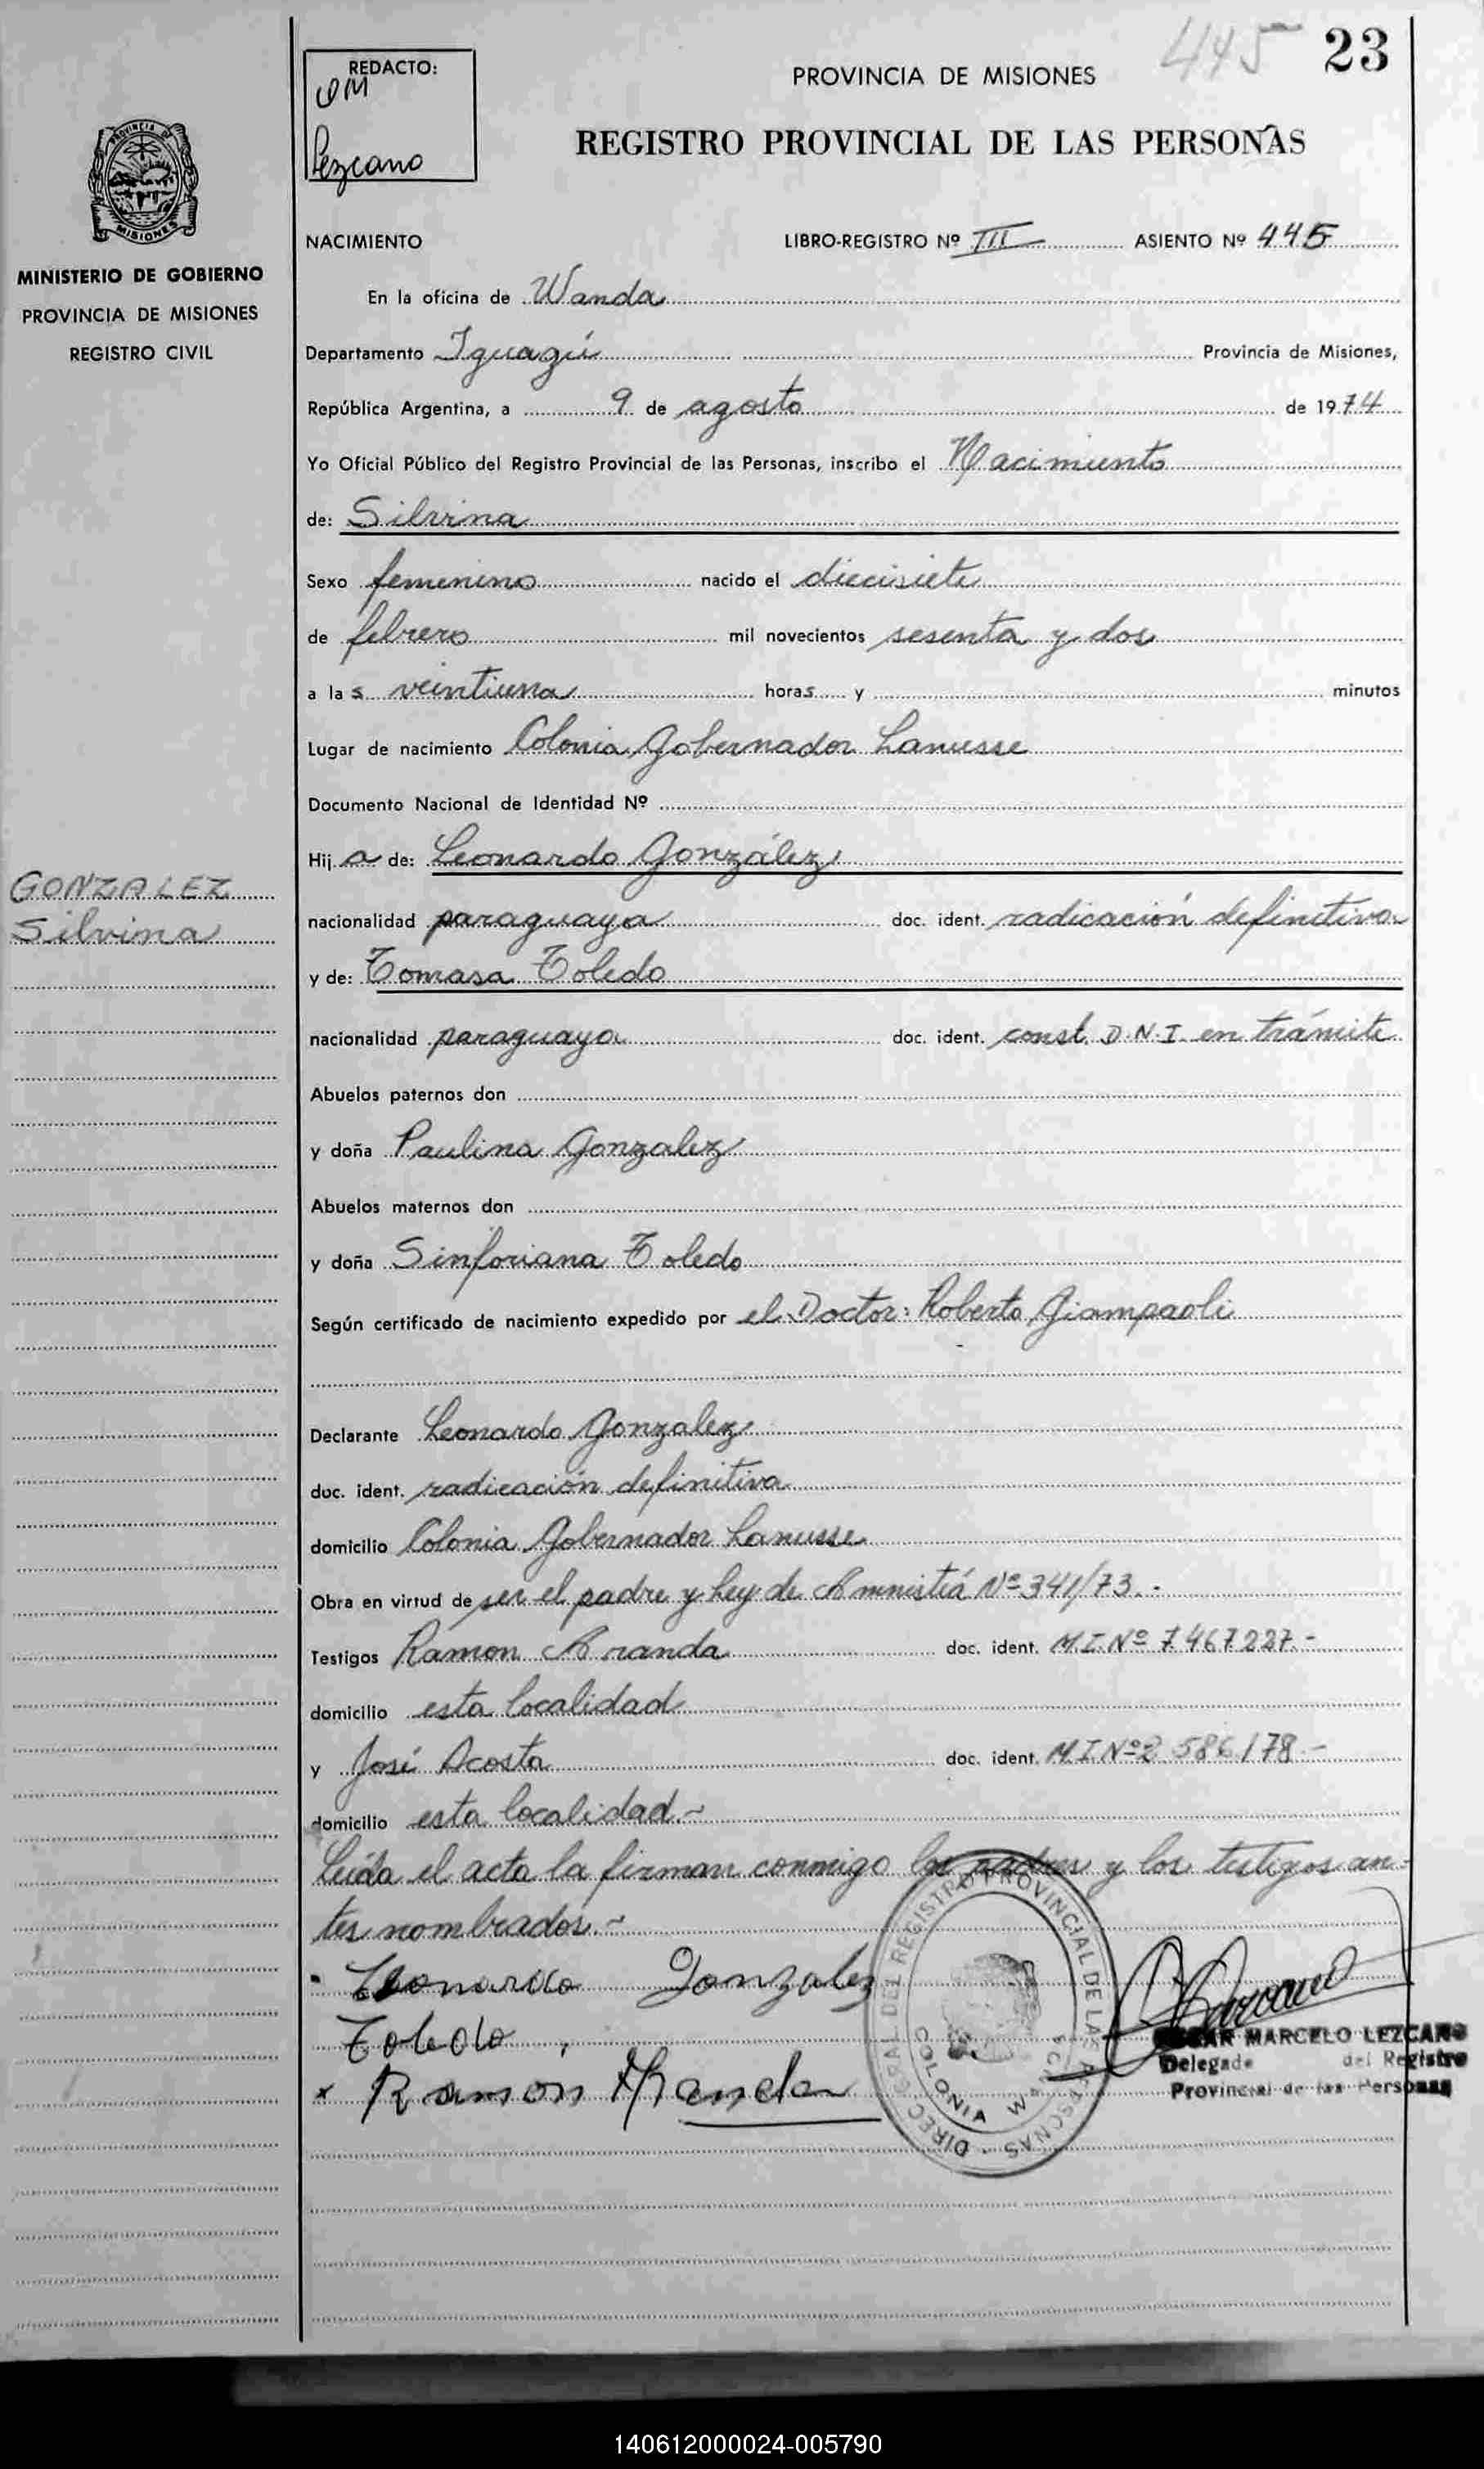 445 23
REDACTO:
OM
Lezcano
PROVINCIA DE MISIONES
REGISTRO PROVINCIAL DE LAS PERSONAS
PROVINCIA DE
MISIONES
MINISTERIO DE GOBIERNO
PROVINCIA DE MISIONES
REGISTRO CIVIL
NACIMIENTO LIBRO-REGISTRO Nº III ASIENTO Nº 445
En la oficina de Wanda
Departamento Iguazú Provincia de Misiones,
República Argentina, a 9 de agosto de 1974
Yo Oficial Público del Registro Provincial de las Personas, inscribo el Nacimiento
de: Silvina
Sexo femenino nacido el diecisiete
de febrero mil novecientos sesenta y dos
a las veintiuna horas y minutos
Lugar de nacimiento Colonia Gobernador Lanusse
Documento Nacional de Identidad Nº
Hija de: Leonardo González
GONZALEZ
Silvina
nacionalidad paraguaya doc. ident. radicación definitiva
y de: Tomasa Toledo
nacionalidad paraguaya doc. ident. const. D.N.I. en trámite
Abuelos paternos don
y doña Paulina Gonzalez
Abuelos maternos don
y doña Sinforiana Toledo
Según certificado de nacimiento expedido por el Doctor: Roberto Giampaoli
Declarante Leonardo Gonzalez
doc. ident. radicación definitiva
domicilio Colonia Gobernador Lanusse
Obra en virtud de ser el padre y Ley de Amnistiá Nº 341/73.-
Testigos Ramon Aranda doc. ident. M.I. Nº 7467227-
domicilio esta localidad
y José Acosta doc. ident. M.I. Nº 2 586178.-
domicilio esta localidad.-
Leída el acta la firman conmigo los padres y los testigos an-
tes nombrados.-
Leonardo Gonzalez
Toledo
x Ramon Aranda
DIREC. GRAL DEL REGISTRO PROVINCIAL DE LAS PERSONAS
COLONIA
OSCAR MARCELO LEZCANO
Delegado del Registro
Provincial de las Personas
140612000024-005790